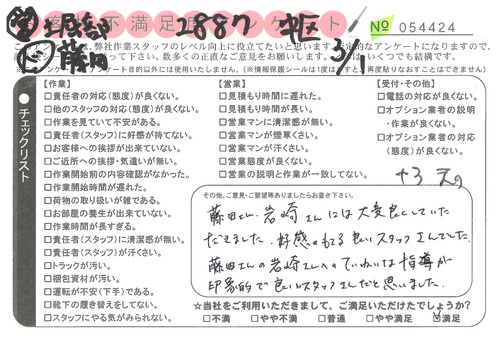 不満足
ンケート
2887
中区
3/1
No 054424
藤田
この
は、弊社作業スタッフのレベル向上に役立てたいと思います。
なアンケートになりますので、
って下さい。数多くの正直なご意見をお願いします。
はいくつでも結構です。
ンケート目的以外には使用いたしません。(※情報保護シールは1度は
と再度貼りなおすことはできません)
チェックリスト
【作業】
□責任者の対応(態度)が良くない。
□他のスタッフの対応(態度)が良くない。
□作業を見ていて不安がある。
□責任者(スタッフ)に好感が持てない。
□お客様への挨拶が出来ていない。
□ご近所への挨拶・気遣いが無い。
□作業開始前の内容確認がなかった。
□作業開始時間が遅れた。
□荷物の取り扱いが雑である。
□お部屋の養生が出来ていない。
□作業時間が長すぎる。
□責任者(スタッフ)に清潔感が無い。
□責任者(スタッフ)が汗くさい。
□トラックが汚い。
□梱包資材が汚い。
□運転が不安(下手)である。
□靴下の履き替えをしてない。
□スタッフにやる気がみられない。
【営業】
□見積もり時間に遅れた。
□見積もり時間が長い。
□営業マンに清潔感が無い。
□営業マンが煙草くさい。
□営業マンが汗くさい。
□営業態度が良くない。
□営業の説明と作業が一致してない。
【受付・その他】
□電話の対応が良くない。
□オプション業者の説明
・作業が良くない。
□オプション業者の対応
(態度)が良くない。
その他、ご意見・ご要望等ありましたらお書き下さい。
藤田さん、岩崎さんには大変良くしていた
だきました。好感のもてる良いスタッフさんでした。
藤田さんの岩崎さんへのていねいな指導が
印象的で良いスタッフさんだと思いました。
☆当社をご利用いただきまして、ご満足いただけたでしょうか?
□不満 □やや不満 □普通 □やや満足 ☑満足